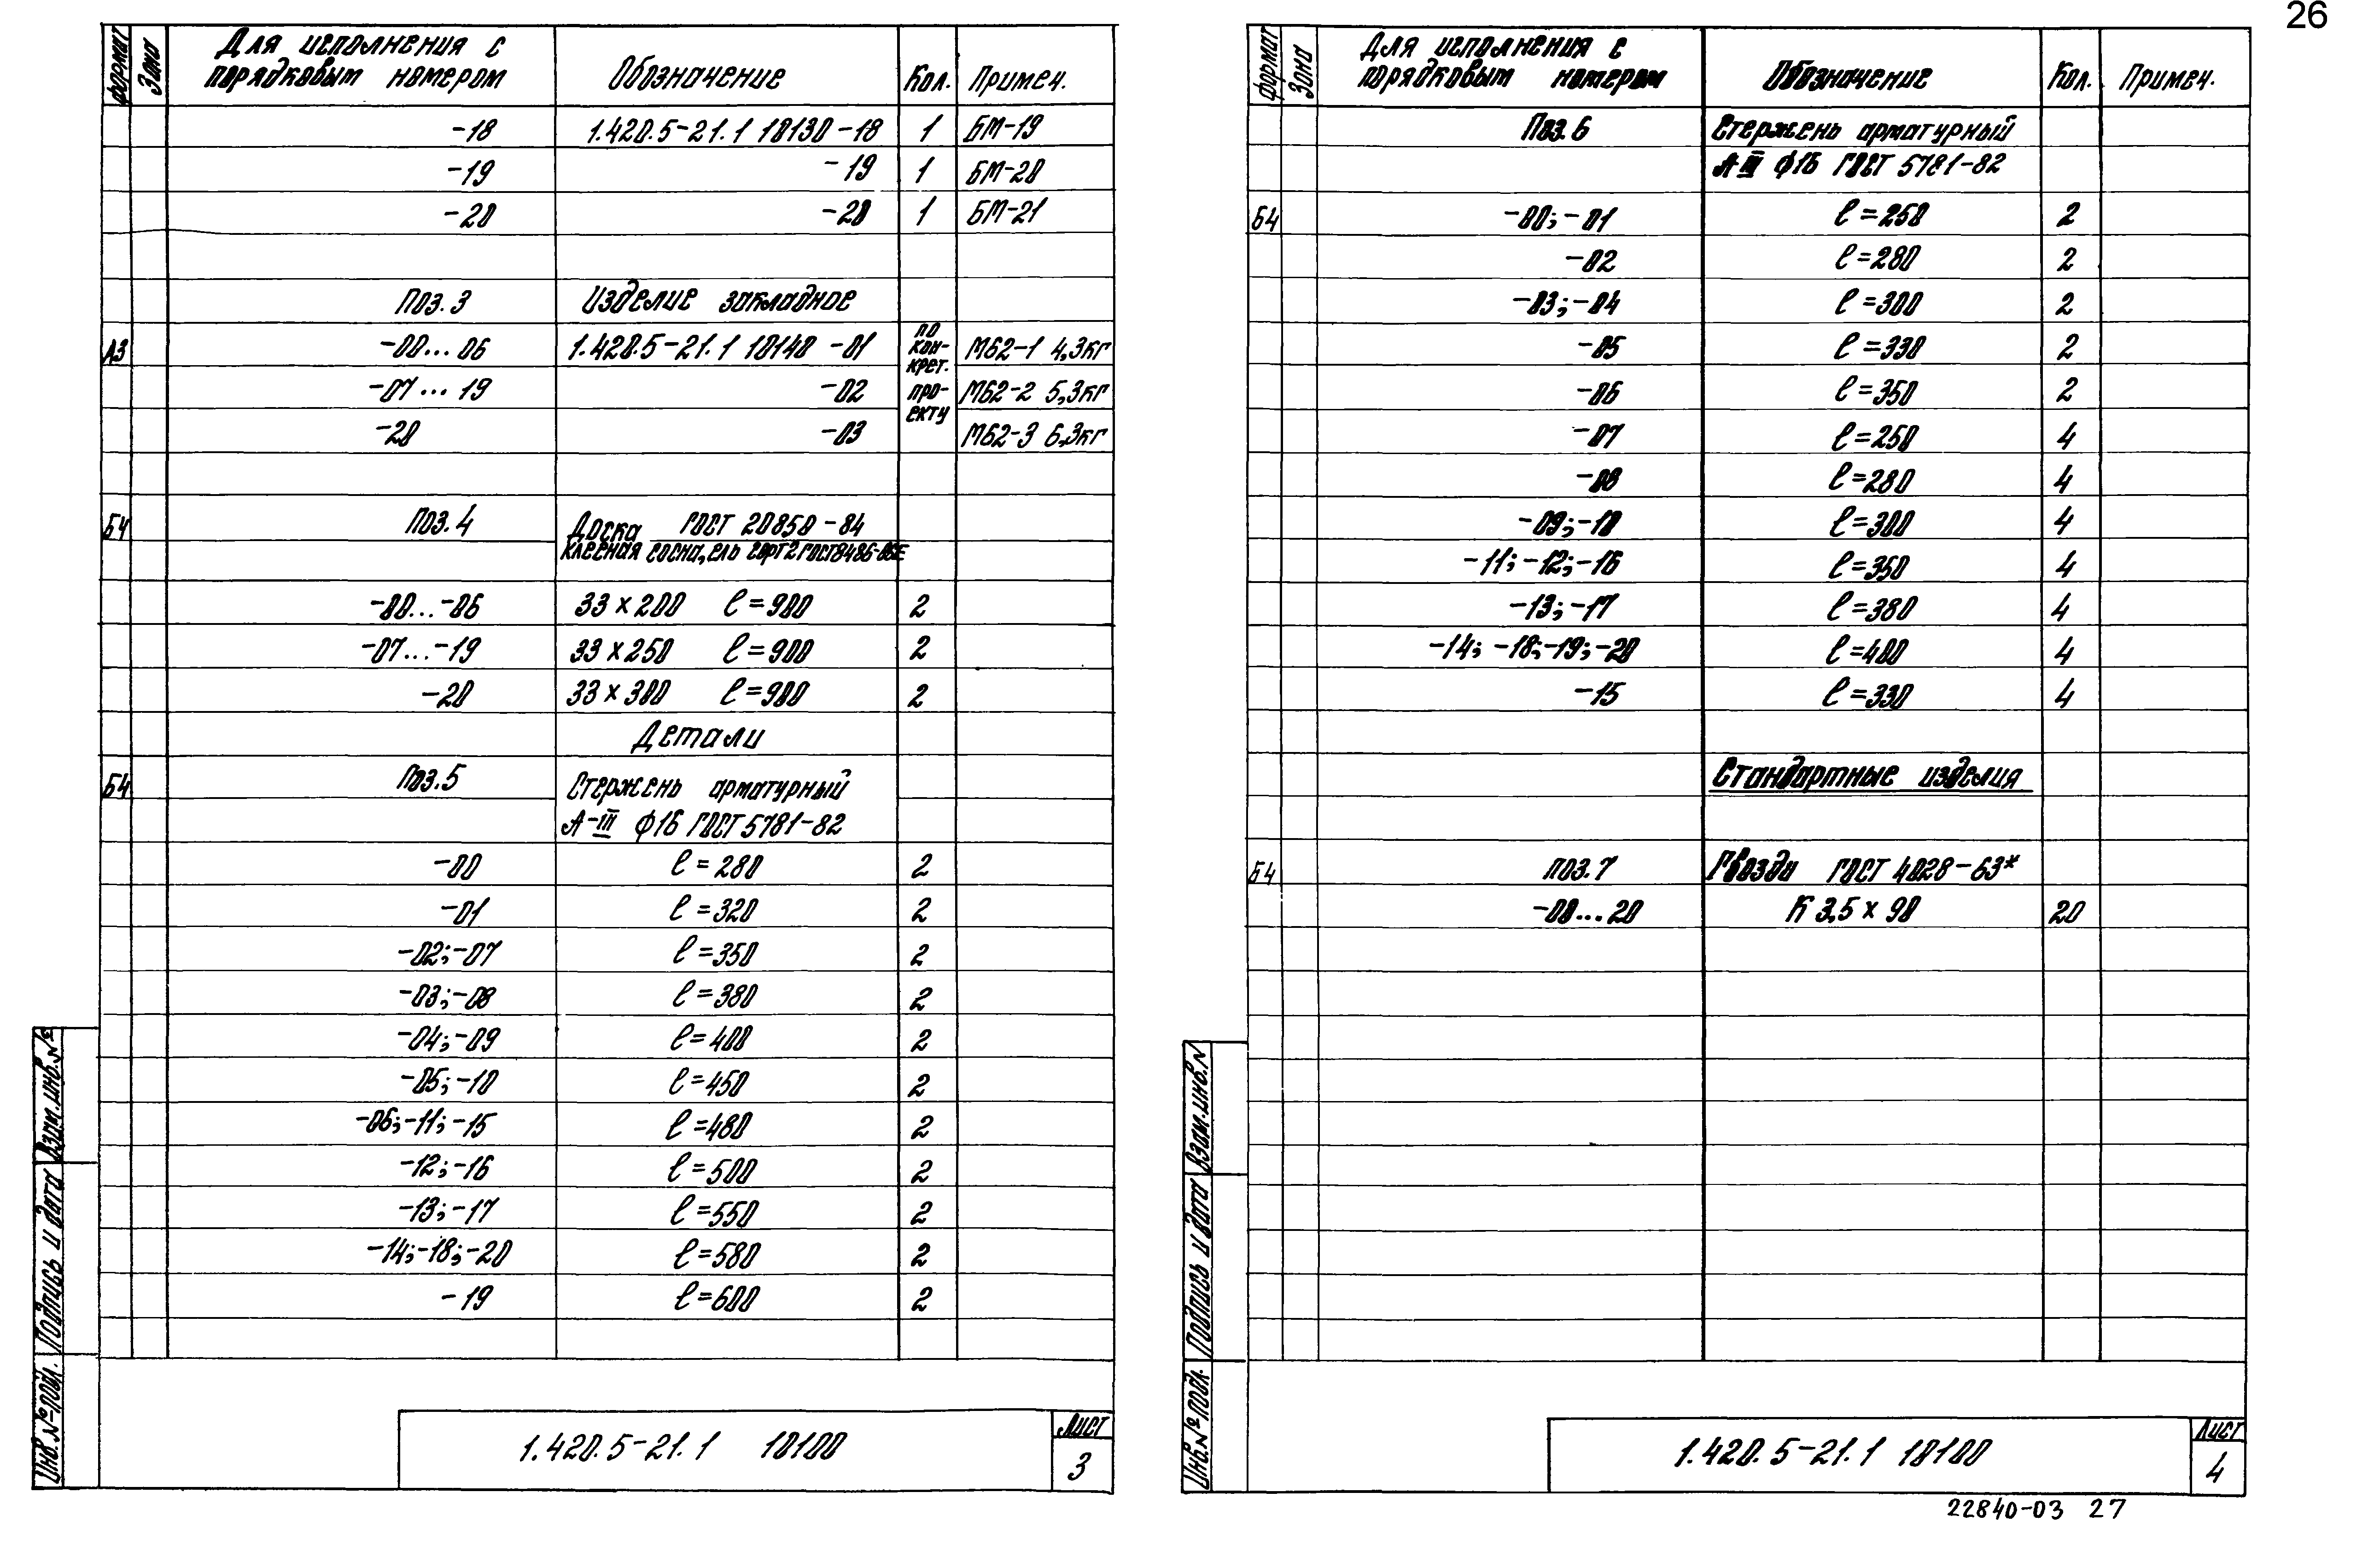 26
формат Зона Для исполнения с порядковым номером Обозначение Кол. Примеч.
-18 1.420.5-21.1 10130 -18 1 БМ-19
-19 -19 1 БМ-20
-20 -20 1 БМ-21
Поз. 3 Изделие закладное
А3 -00...06 1.420.5-21.1 10140 -01 по конкрет. проекту М62-1 4,3кг
-07...19 -02 М62-2 5,3кг
-20 -03 М62-3 6,3кг
Б4 Поз. 4 Доска клееная ГОСТ 20850-84
сосна, ель сорт 2 ГОСТ 8486-86Е
-00...-06 33 х 200 ℓ=900 2
-07...-19 33 х 250 ℓ=900 2
-20 33 х 300 ℓ=900 2
Детали
Б4 Поз. 5 Стержень арматурный
А-III ф16 ГОСТ 5781-82
-00 ℓ=280 2
-01 ℓ=320 2
-02;-07 ℓ=350 2
-03;-08 ℓ=380 2
-04;-09 ℓ=400 2
-05;-10 ℓ=450 2
-06;-11;-15 ℓ=480 2
-12;-16 ℓ=500 2
-13;-17 ℓ=550 2
-14;-18;-20 ℓ=580 2
-19 ℓ=600 2
Взам.инв.№
Подпись и дата
Инв.№подл.
1.420.5-21.1 10100
Лист
3
формат Зона Для исполнения с порядковым номером Обозначение Кол. Примеч.
Поз. 6 Стержень арматурный
А III ф16 ГОСТ 5781-82
Б4 -00;-01 ℓ=250 2
-02 ℓ=280 2
-03;-04 ℓ=300 2
-05 ℓ=330 2
-06 ℓ=350 2
-07 ℓ=250 4
-08 ℓ=280 4
-09;-10 ℓ=300 4
-11;-12;-16 ℓ=350 4
-13;-17 ℓ=380 4
-14;-18;-19;-20 ℓ=400 4
-15 ℓ=330 4
Стандартные изделия
Б4 поз. 7 Гвозди ГОСТ 4028-63*
-00...20 К 3,5 х 90 20
Взам.инв.№
Подпись и дата
Инв.№подл.
1.420.5-21.1 10100
Лист
4
22840-03 27